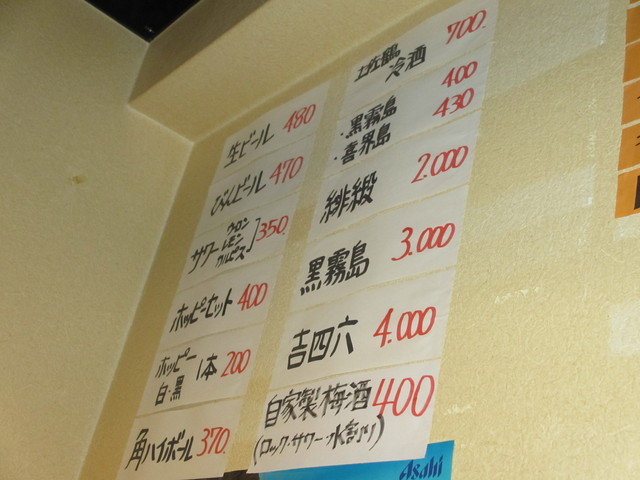 生ビール 480
びんビール 470
サワー ウロン レモン カルピス 350.
ホッピーセット 400
ホッピー 白・黒 1本 200
角ハイボール 370.
土佐鶴 冷酒 700.
・黒霧島 400
・喜界島 430
緋緞 2.000
黒霧島 3.000
吉四六 4.000
自家製梅酒 400
(ロック・サワー・水割り)
Asahi